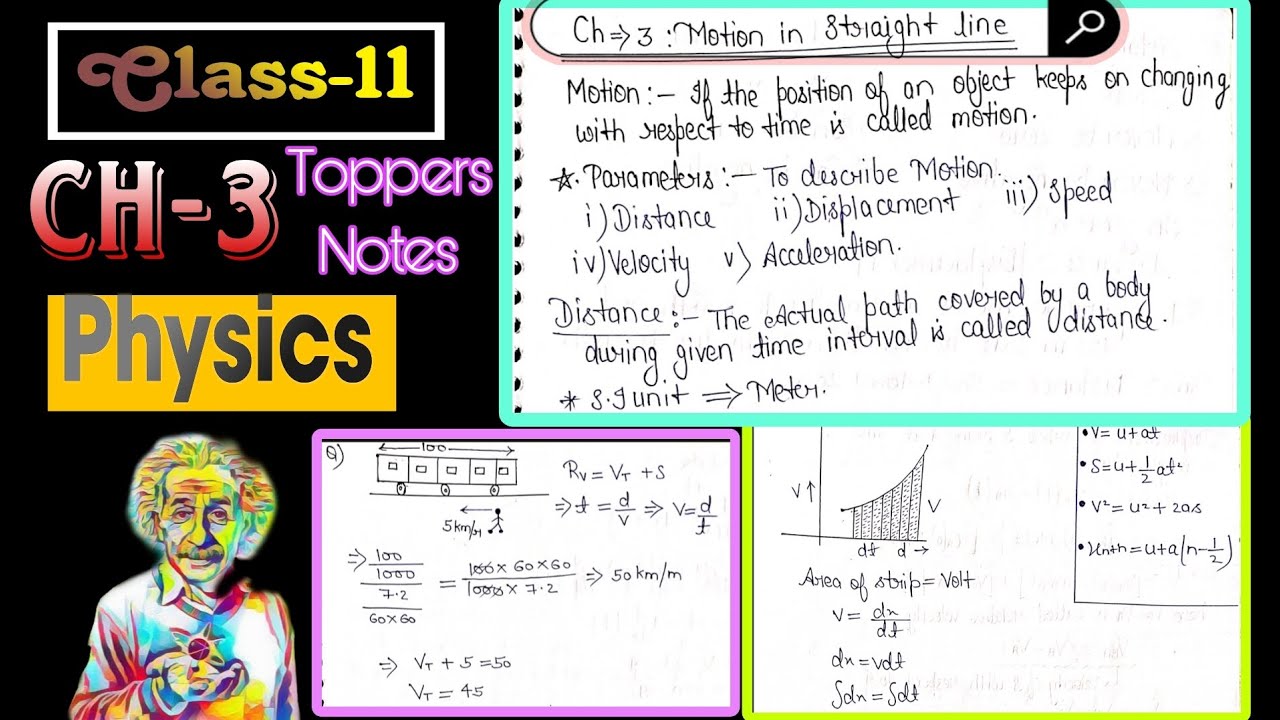 Class-11
CH-3
Toppers
Notes
Physics
Ch⇒3 : Motion in Straight line
Motion :- If the position of an object keeps on changing
with respect to time is called motion.
☆. Parameters :- To describe Motion.
i) Distance ii) Displacement iii) Speed
iv) Velocity v) Acceleration.
Distance :- The actual path covered by a body
during given time interval is called distance.
* S.I unit ⇒ Meter.
Q)
100
5km/hr
Rv = VT + S
⇒ t = d/v ⇒ V = d/t
⇒ 100/1000 / 7.2/60×60 = 100 × 60 × 60 / 1000 × 7.2 ⇒ 50 km/m
⇒ VT + 5 = 50
VT = 45
V↑
V
dt d →
Area of strip = Vdt
V = dx/dt
dx = vdt
∫dx = ∫dt
• V = u + at
• S = u + 1/2 at²
• V² = u² + 2as